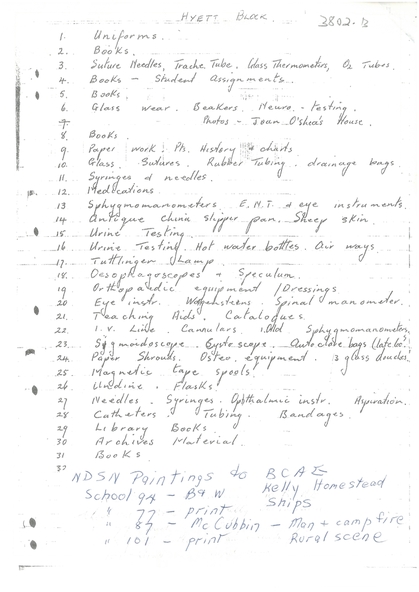 HYETT BLOCK. 3802.B
1. Uniforms.
2. Books.
3. Suture Needles, Trache. Tube. Glass Thermometers, O2 Tubes.
4. Books - Student Assignments.
5. Books.
6. Glass wear. Beakers. Neuro. - testing.
7. Photos - Joan O'Shea's House.
8. Books.
9. Paper work. Ph. History & charts
10. Glass. Sutures. Rubber Tubing. drainage bags.
11. Syringes & needles.
12. Medications.
13 Sphygmomanometers. E.N.T. & eye instruments.
14 Antique china slipper pan. Sheep skin.
15 Urine Testing.
16 Urine Testing. Hot water bottles. Air ways
17. Tuttlinger Lamp.
18. Oesophagoscopes & Speculum.
19 Orthopaedic equipment / Dressings
20 Eye instr. Wagensteens. Spinal manometer.
21. Teaching Aids. Catalogues.
22. I.V. Line. Cannulars. 1.Old Sphygmomanometers
23. Sigmoidoscope. Cystoscope. Autoclave bags
24. Paper Shrouds. Osteo. equipment. 3 glass douches
25. Magnetic tape spools.
26. Undine. Flasks
27 Needles. Syringes. Opthalmic instr. Aspiration.
28 Catheters. Tubing. Bandages.
29 Library Books.
30 Archives Material.
31 Books.
32
NDSN Paintings to BCAE
School 94 - B&W Kelly Homestead
" 77 - print Ships
" 87 - McCubbin - Man + camp fire
" 101 - print Rural scene